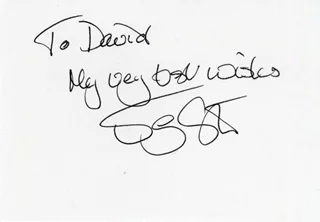 To David
My very best wishes